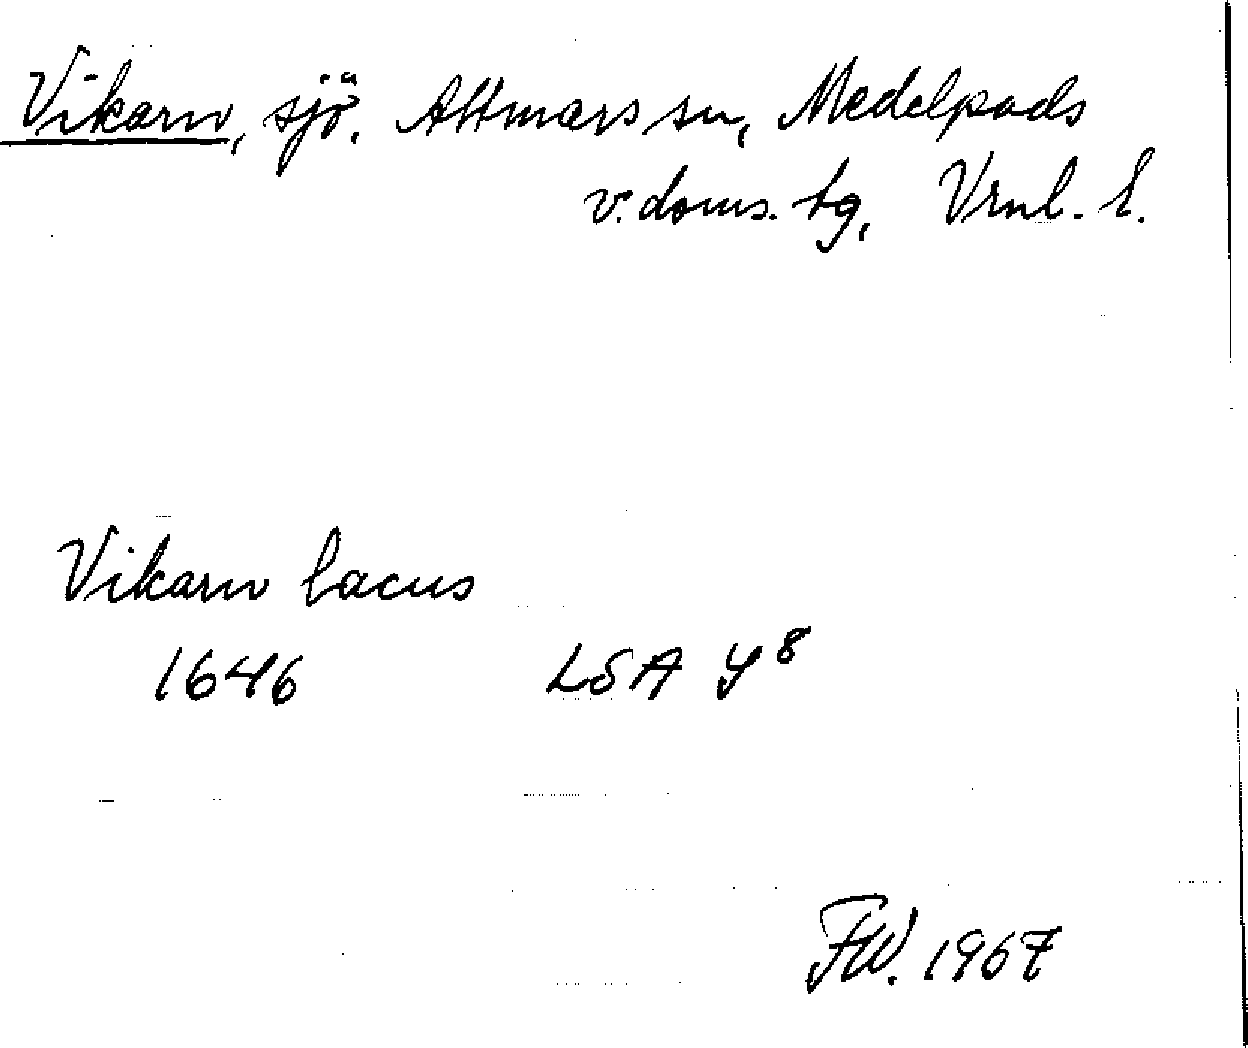 Vikarn, sjö. Attmars sn, Medelpads
v. doms. tg, Vrnl. l.
Vikarn lacus
1646 LSA Y 8
FW. 1967